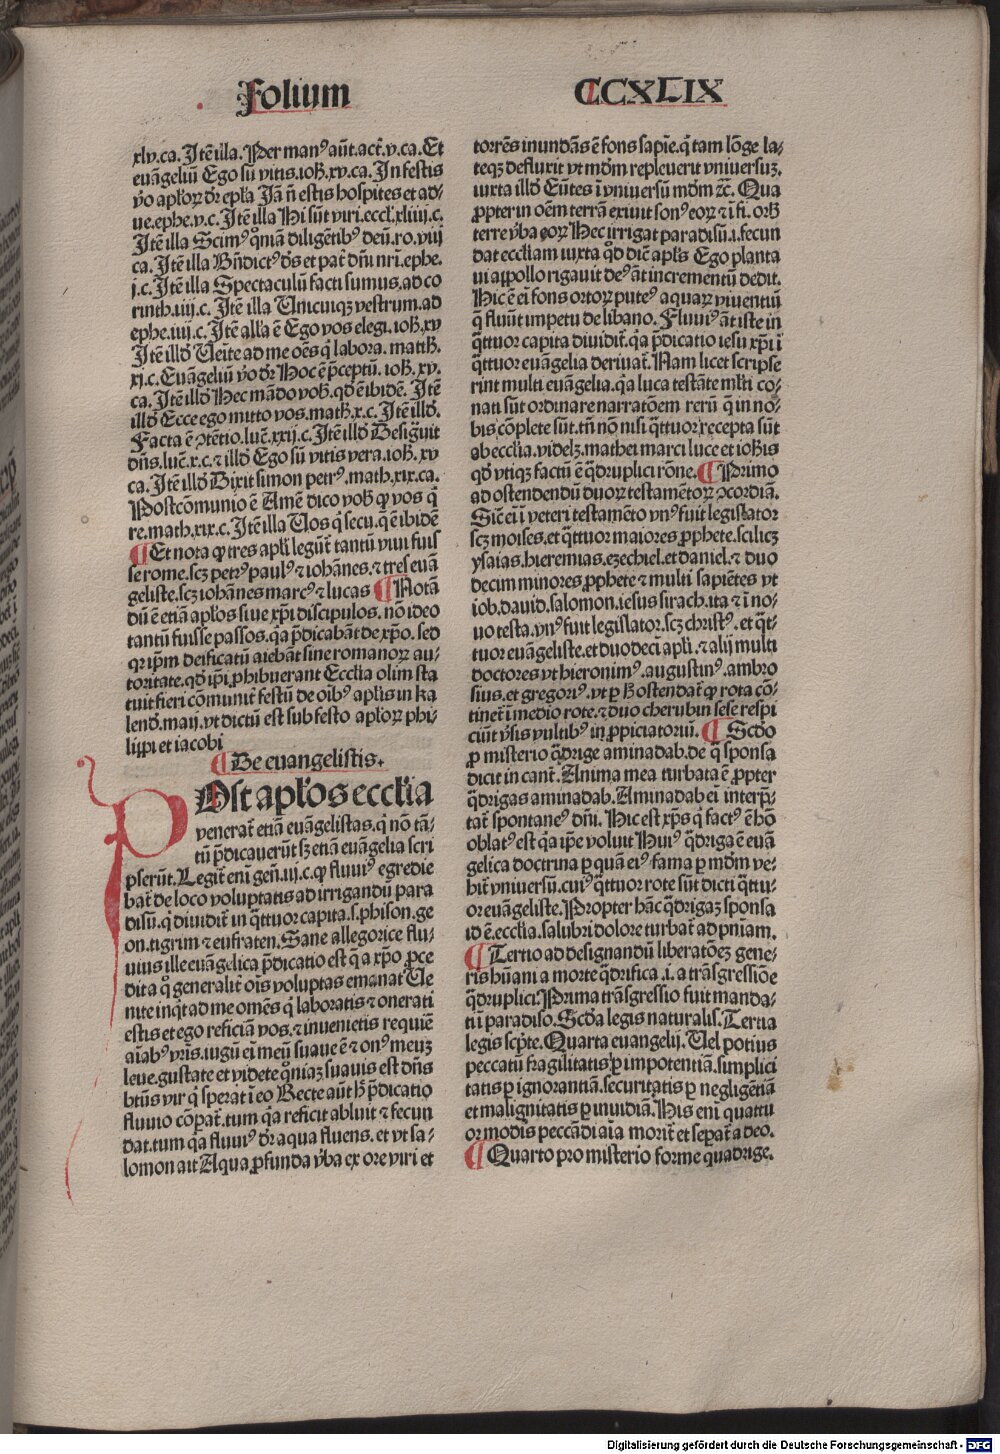 Folium CCXLIX
xlv.ca. Itē illa. Per man⁹ aūt.act̄.v.ca. Et
euāgeliū Ego sū vitis.ioh̄.xv.ca. In festis
v̓o apl̓oꝝ dr̄ epl̓a Jā n̄ estis hospites et ad-
ue.ephe.v.c. Itē illa Hi sūt viri.eccl̓.xliiij.c.
Itē illa Scim⁹ qm̄iā diligētib⁹ deū.ro.viij
ca. Itē illa Bn̄dict⁹ dꝰs et pat̄ dn̄i nr̄i.ephe.
j.c. Itē illa Spectaculū facti sumus.ad co
rinth.iiij.c. Itē illa Unicuiqꝫ vestrum.ad
ephe.iiij.c. Itē all̓a ē Ego vos elegi.ioh̄.xv
Itē illd̓ Ueīte ad me oēs q̇ labora. matth̄.
xj.c. Euāgeliū v̓o dr̄ Hoc ē p̄ceptū. ioh̄. xv.
ca. Itē illd̓ Hec mādo vob̄. qd̓ ē ibidē. Itē
illd̓ Ecce ego mitto vos.math̄.x.c. Itē illd̓.
Facta ē ꝯtētio.luc̄.xxij.c. Itē illd̓ Desig̓uit
dn̄s.luc̄.x.c.⁊ illd̓ Ego sū vitis vera.ioh̄.xv
ca. Itē illd̓ Dixit simon petr⁹.math.xix.ca.
Postcōmunio ē Amē dico vob̄ ꝙ vos q̇
re.math.xix.c. Itē illa Uos q̇ secu.q̄ ē ibidē
¶ Et nota ꝙ tres apl̓i legūt̄ tantū viui fuis
se rome.scꝫ petr⁹ paul⁹ ⁊ iohānes.⁊ tres euā
geliste.scꝫ iohānes marc⁹ ⁊ lucas ¶ Notā
dū ē etiā apl̓os siue xp̄i discipulos. nō ideo
tantū fuisse passos.q̓a p̄dicabāt de xp̄o. sed
qꝛ ip̄m deificatū aiebāt sine romanoꝝ au-
toritate.qd̓ ip̄i ꝓhibuerant Eccl̓ia olim sta
tuit fieri cōmunit̄ festū de oīb⁹ apl̓is in ka
lend̓.maij.vt dictū est sub festo apl̓oꝝ phi-
lippi et iacobi
¶ De euangelistis.
POst apl̓os eccl̓ia
venerat̄ etiā euāgelistas.q̇ nō tā-
tū p̄dicauerūt sꝫ etiā euāgelia scri
pserūt. Legit̄ eni gen̄.iij.c.ꝙ fluui⁹ egredie
bat̄ de loco voluptatis ad irrigandū para
disū.q̇ diuidit̄ in q̓ttuor capita.s.phison.ge
on.tigrim ⁊ eufraten. Sane allegorice flu-
uius ille euāgelica p̄dicatio est q̄ a xp̄o ꝓce
dit a q̊ generalit̄ oīs voluptas emanat Ue
nite inq̇t ad me omēs q̇ laboratis ⁊ onerati
estis et ego reficiā vos.⁊ inuenietis requiē
aīab⁹ vr̄is.iugū eī meū suaue ē ⁊ on⁹ meuꝫ
leue.gustate et videte qm̄iaꝫ suauis est dn̄s
btūs vir q̇ sperat ī eo Recte aūt h̄ p̄dicatio
fluuio cōꝑat̄.tum q̓a reficit abluit ⁊ fecun
dat.tum q̓a fluui⁹ dr̄ aqua fluens. et vt sa-
lomon ait Aqua ꝓfunda v̓ba ex ore viri et
torrēs inundās ē fons sapīe.q̄ tam lōge la-
teqꝫ defluxit vt mdm̄ repleuerit vniuersuꝫ.
iuxta illd̓ Eūtes ī vniuersū mdm̄ ⁊c̄. Qua
ꝓpter in oēm terrā exiuit son⁹ eoꝝ ⁊ ī fi. orb̄
terre v̓ba eoꝝ Hec irrigat paradisū.i.fecun
dat eccl̓iam iuxta qd̓ dic̄ apl̓s Ego planta
ui appollo rigauit de⁹ aūt incrementū dedit.
Hic ē eī fons ortoꝝ pute⁹ aquaꝝ viuentiū
q̄ fluūt impetu de libano. Fluui⁹ aūt iste in
q̓ttuor capita diuidit̄.q̓a p̄dicatio iesu xp̄i ī
q̓ttuor euāgelia deriuat̄. Nam licet scripse
rint multi euāgelia.q̓a luca testāte ml̓ti co-
nati sūt ordinare narratōem rerū q̄ in no-
bis cōplete sūt.tn̄ nō nisi q̓ttuor recepta sūt
ab eccl̓ia.videlꝫ.mathei marci luce et ioh̄is
qd̓ vtiqꝫ factū ē q̓druplici rōne. ¶ Primo
ad ostendendū duoꝝ testamētoꝝ ꝯcordiā.
Sic̄ eī ī veteri testamēto vn⁹ fuit legislator
scꝫ moises.et q̓ttuor maiores ꝓphete.scilicꝫ
ysaias.hieremias.ezechiel.et daniel.⁊ duo
decim minores ꝓphete ⁊ multi sapiētes vt
iob.dauid.salomon.iesus sirach.ita ⁊ ī no-
uo testa.vn⁹ fuit legislator.scꝫ christ⁹. et q̓t-
tuor euāgeliste.et duodeci apl̓i.⁊ alij multi
doctores vt hieronim⁹. augustin⁹. ambro
sius.et gregori⁹.vt p h̄ ostendat̄ ꝙ rota cō-
tinet̄ ī medio rote.⁊ duo cherubin sese respi
ciūt v̓sis vultib⁹ in ꝓpiciatoriū. ¶ Scd̓o
ꝓ misterio q̓drige aminadab.de q̄ sponsa
dicit in cant̄. Anima mea turbata ē ꝓpter
q̓drigas aminadab. Aminadab eī interp̄-
tat̄ spontane⁹ dn̄i. Hic est xp̄s q̇ fact⁹ ē hō
oblat⁹ est q̓a ip̄e voluit Hui⁹ q̓driga ē euā
gelica doctrina ꝑ quā ei⁹ fama ꝑ mdm̄ ve-
hit̄ vniuersū.cui⁹ q̓ttuor rote sūt dicti q̓ttu-
or euāgeliste. Propter hāc q̓drigaꝫ sponsa
id ē.eccl̓ia.salubri dolore turbat̄ ad pn̄iam.
¶ Tertio ad designandū liberatōeꝫ gene-
ris hūani a morte q̓drifica.i.a trāsgressiōe
q̓druplici. Prima trāsgressio fuit manda-
ti ī paradiso. Scd̓a legis naturalis. Tertia
legis sc̓pte. Quarta euangelij. Uel potius
peccatū fragilitatis ꝑ impotentiā.simplici
tatis ꝑ ignorantiā.securitatis ꝑ negligētiā
et malignitatis ꝑ inuidiā. His eni quattu
or modis peccādi aīa morit̄ et sepat̄ a deo.
¶ Quarto pro misterio forme quadrige.
Digitalisierung gefördert durch die Deutsche Forschungsgemeinschaft - DFG